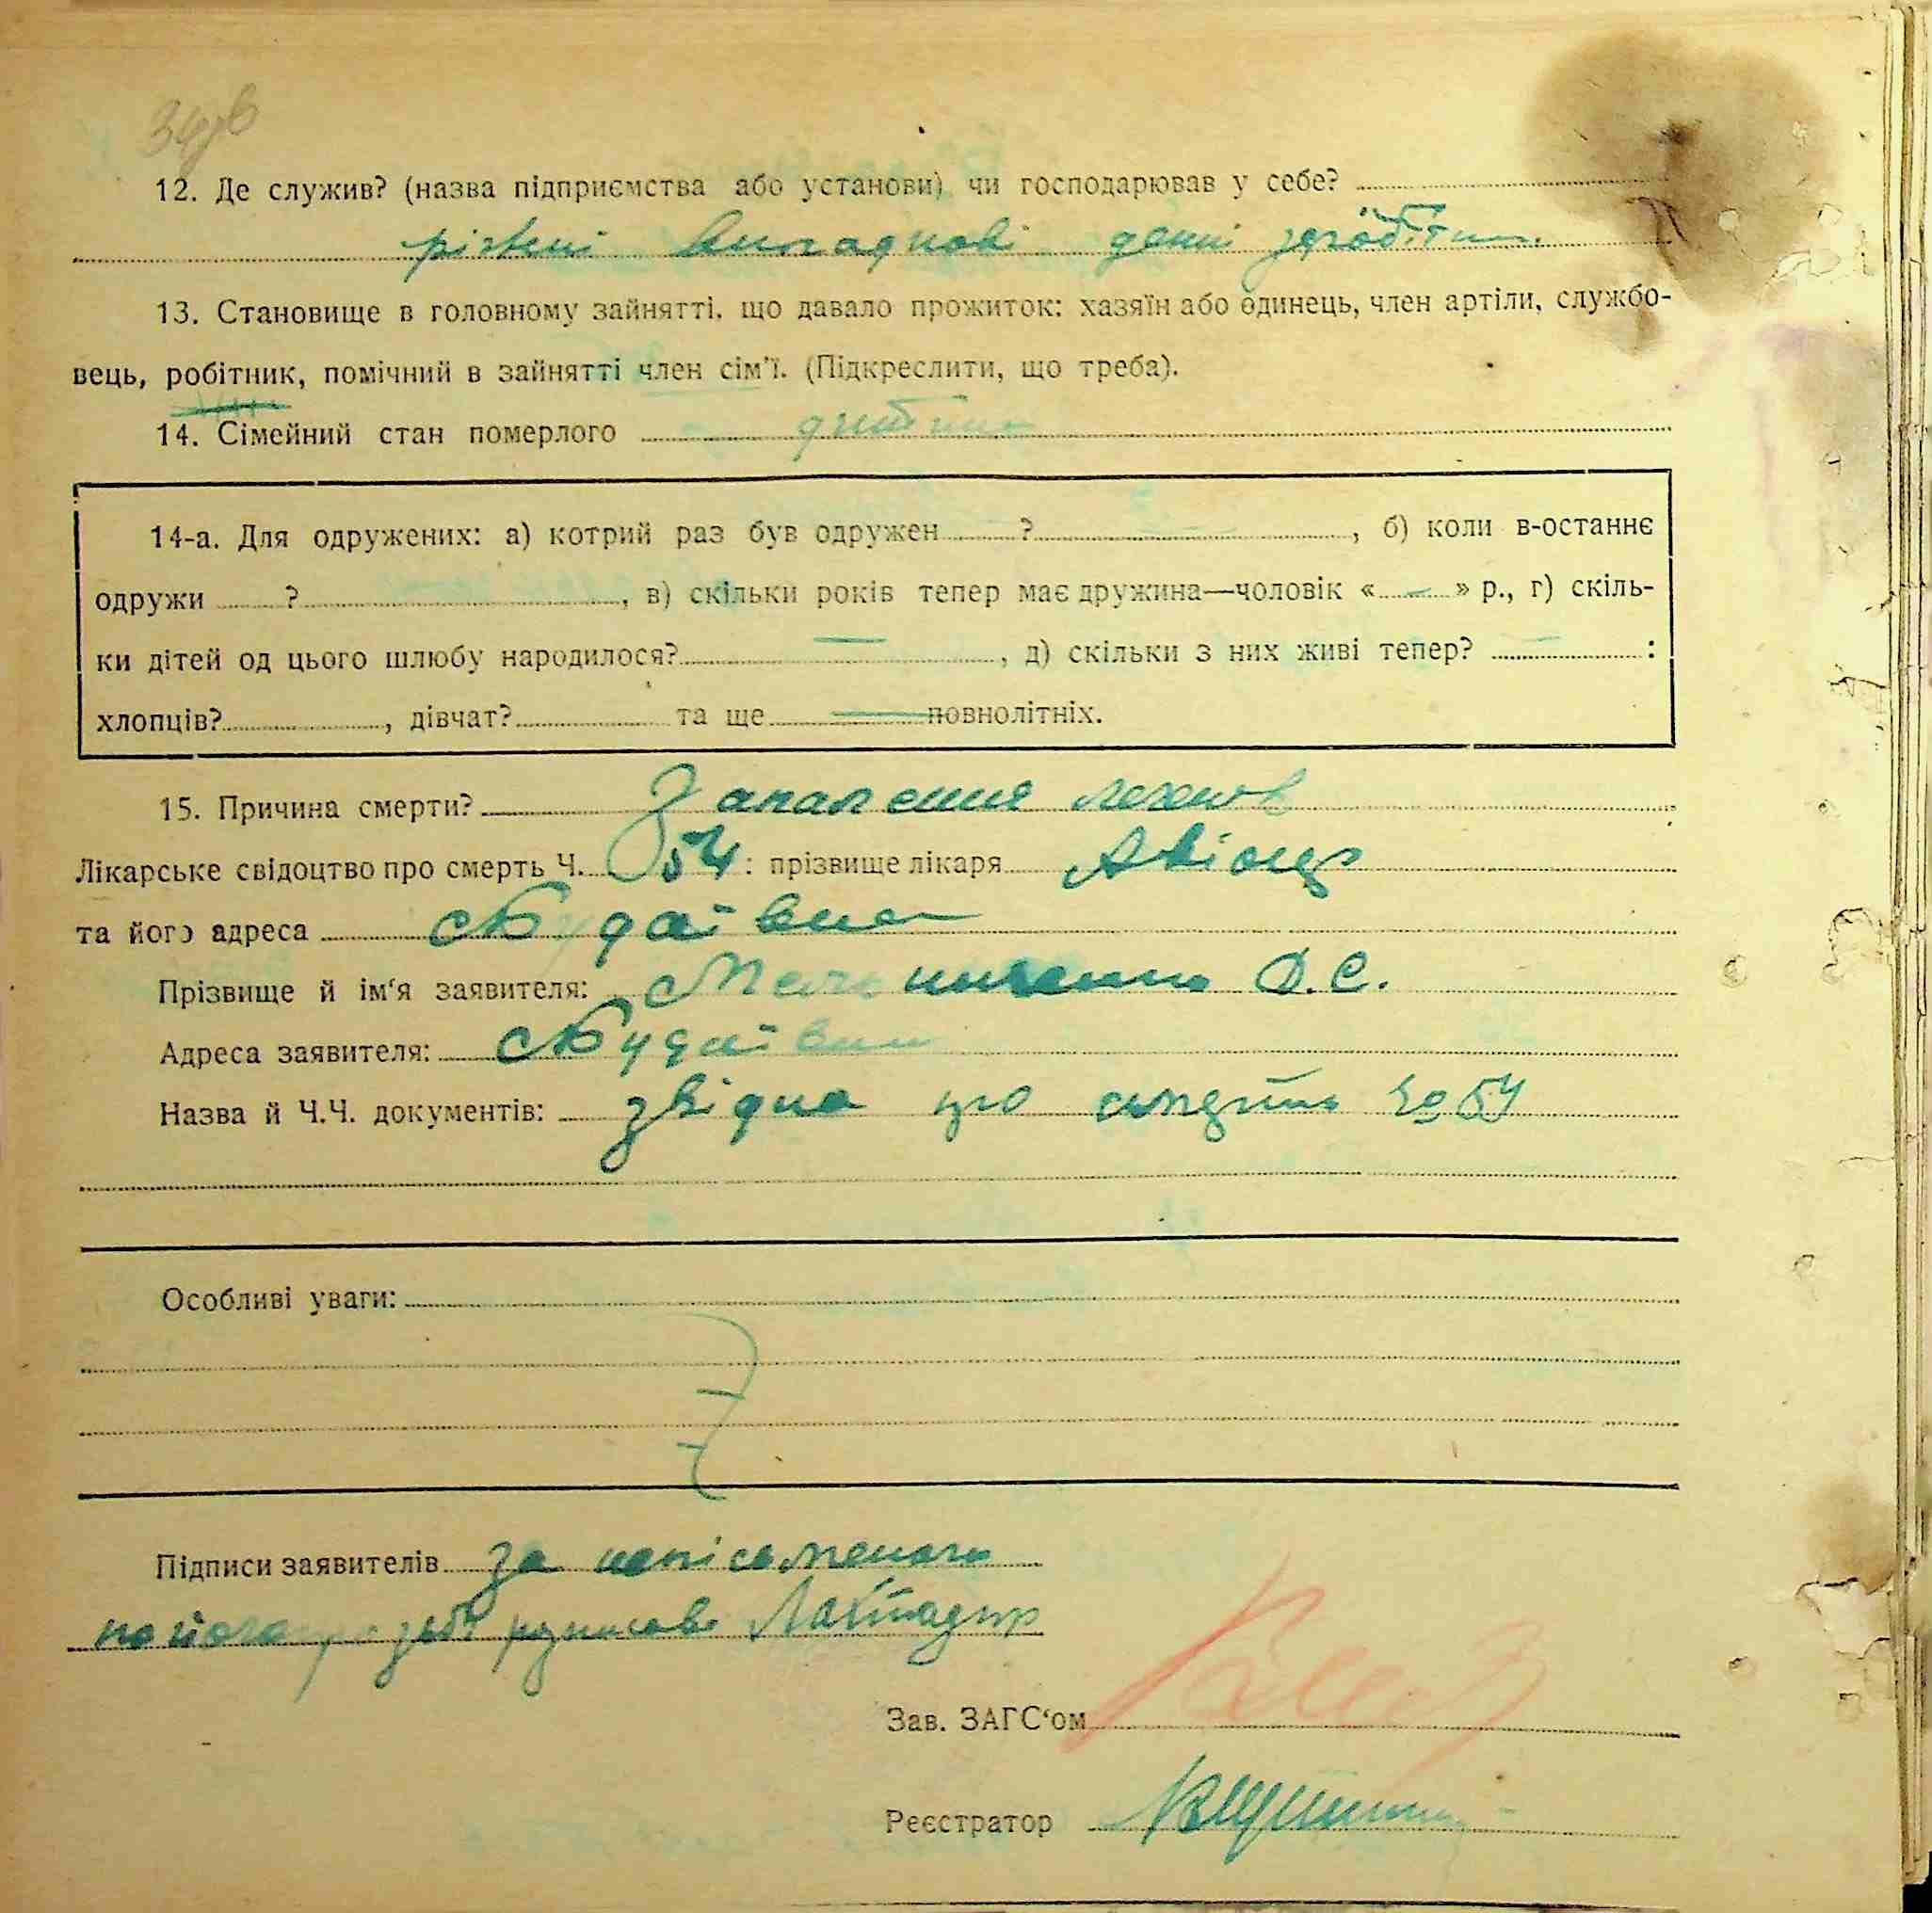 12. Де служив? (назва підприємства або установи) чи господарював у себе?
різтні випадкові денні заробітки
13. Становище в головному зайнятті, що давало прожиток: хазяїн або одинець, член артіли, службо-
вець, робітник, помічний в зайнятті член сім'ї. (Підкреслити, що треба).
14. Сімейний стан померлого дитина
14-а. Для одружених: а) котрий раз був одружен ? — , б) коли в-останнє
одружи ? — , в) скільки років тепер має дружина—чоловік « — » р., г) скіль-
ки дітей од цього шлюбу народилося? — , д) скільки з них живі тепер? — :
хлопців? , дівчат? та ще — повнолітніх.
15. Причина смерти? Запалення легенів
Лікарське свідоцтво про смерть Ч. 54 : прізвище лікаря
та його адреса с Будаївка
Прізвище й ім'я заявителя: Д. С.
Адреса заявителя: с Будаївка
Назва й Ч.Ч. документів: звідка про смерть № 54
Особливі уваги:
Підписи заявителів за неписьменого
по його прозьбі
Зав. ЗАГС'ом
Реєстратор